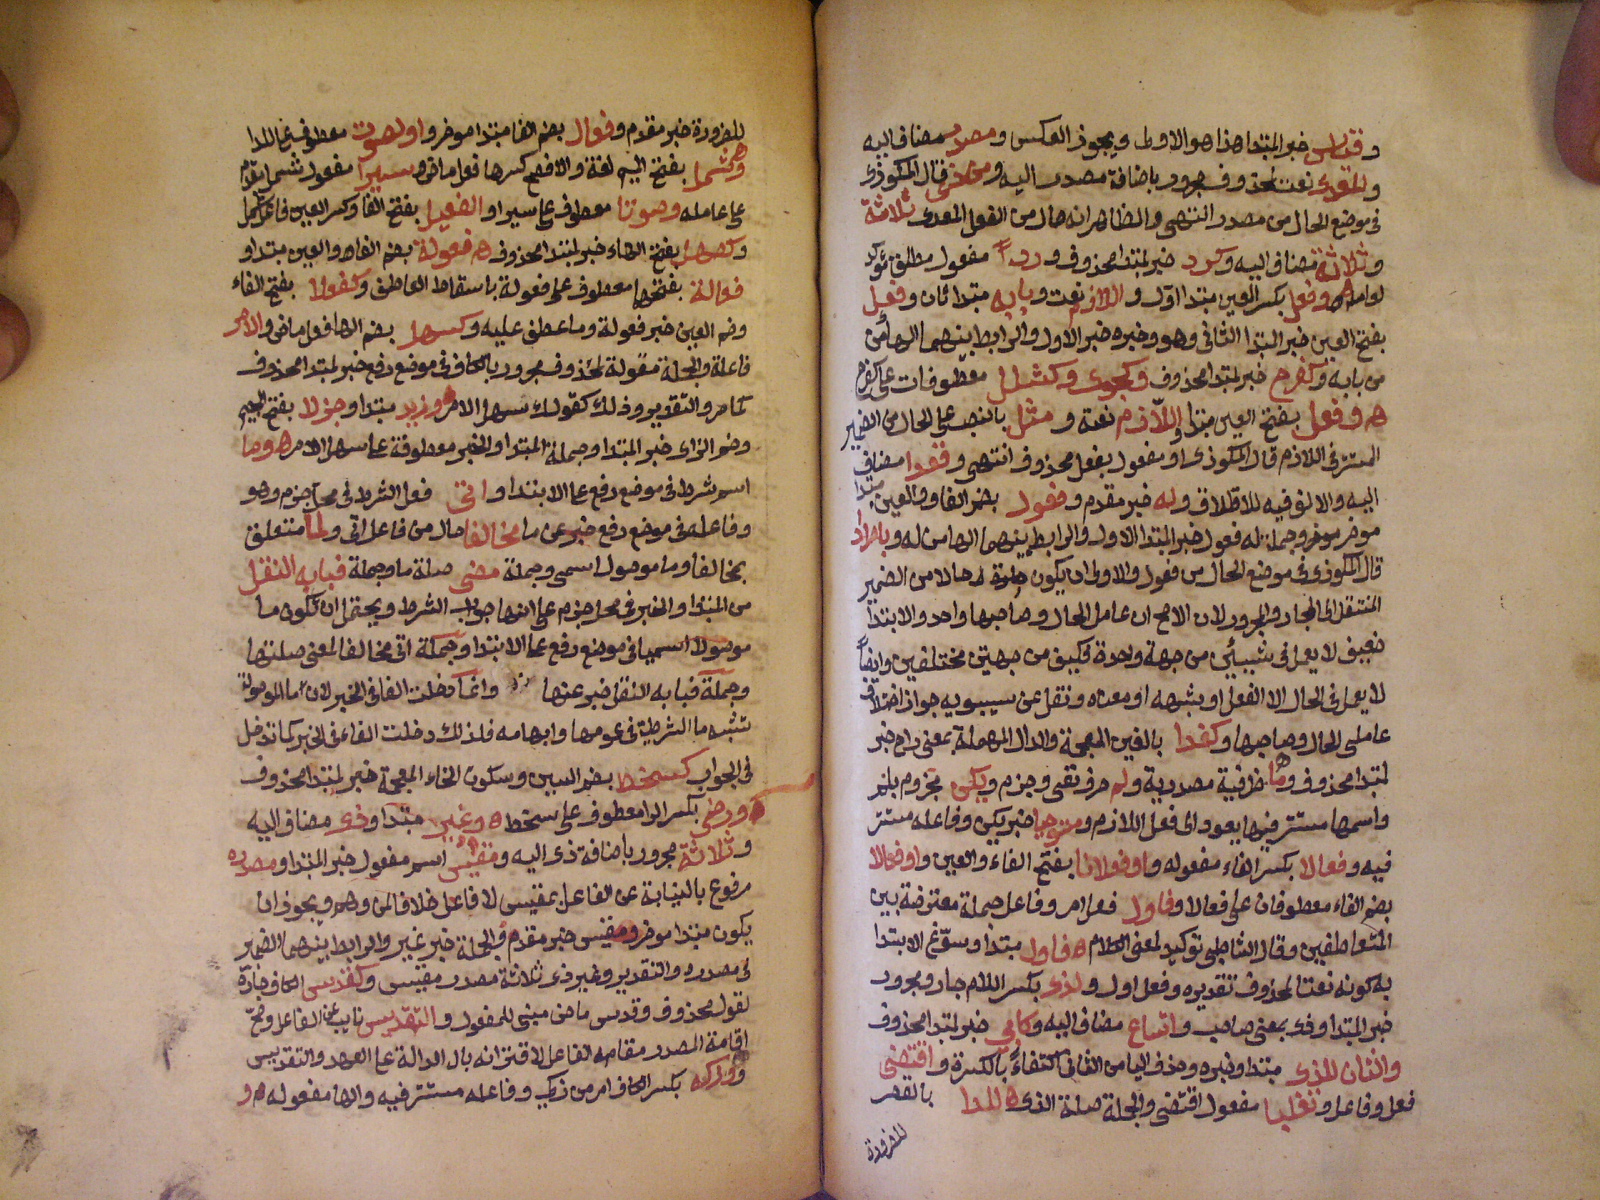 وقياس خبر المبتدا هذا هو الاولى ويجوز العكس ومصدر مضاف اليه
والمعدى نعت لمحذوف مجرور باضافة مصدر اليه ومن ذى قال المكوذى
فى موضع الحال من مصدر انتهى والظاهر انه حال من الفعل المعدى ثلاثة
وثلاثة مضاف اليه وكرد خبر لمبتدا محذوف وردا مفعول مطلق مؤكد
لعامله وفعل بكسر العين مبتدا اول واللازم نعت وبابه مبتدا ثان وفعل
بفتح العين خبر المبتدا الثانى وهو وخبره خبر الاول والرابط بينهما الها من
من بابه وكفرح خبر لمبتدا محذوف وكجوى وكشلل معطوفات على كفرح
وفعل بفتح العين مبتدا واللازم نعته ومثل بالنصب على الحال من الضمير
المستتر فى اللازم قال المكوذى او مفعول بفعل محذوف انتهى وقعدا مضاف
اليه والالف فيه للاطلاق وله خبر مقدم وفعول بضم الفا والعين مبتدا
موخر وجملة له فعول خبر المبتدا الاول والرابط بينهما الها من له وباطراد
قال المكوذى فى موضع الحال من فعول والاولى ان يكون حالا من الضمير
المنتقل الى الجار والمجرور لان الاصح ان عامل الحال وصاحبها واحد والابتدا
ضعيف لا يعمل فى شيئين من جهة واحدة فكيف من جهتين مختلفين وايضا
لا يعمل فى الحال الا الفعل او شبهه او معناه ونقل عن سيبويه جواز اختلاف
عاملى الحال وصاحبها وكغدا بالغين المعجمة والدال المهملة بمعنى راح خبر
لمبتدا محذوف وما ظرفية مصدرية ولم حرف نفى وجزم ويكن مجزوم بلم
واسمها مستتر فيها يعود الى فعل اللازم ومستوجبا خبر يكن وفاعله مستتر
فيه وفعالا بكسر الفاء مفعوله واو فعلانا بفتح الفاء والعين واو فعالا
بضم الفاء معطوفان على فعالا وفادر فعل امر وفاعل جملة معترضة بين
المتعاطفين وقال الشاطبى توكيد لمعنى الكلام فاول مبتدا وسوغ الابتدا
به كونه نعتا لمحذوف تقديره وفعل اول ولذى بكسر اللام جار ومجرور
خبر المبتدا وذى بمعنى صاحب وامتناع مضاف اليه وكابى خبر لمبتدا محذوف
والثان للذى مبتدا وخبره وحذف اليا من الثانى اكتفاء بالكسرة واقتضى
فعل وفاعل وتقلبا مفعول اقتضى والجملة صلة الذى للدا بالقصر
للضرورة
للضرورة خبر مقدم وفعال بضم الفا مبتدا موخر واو لصوت معطوف على للدا
وشمل بفتح الميم لغة والافصح كسرها فعل ماض وسيرا مفعول شمل مقدم
على عامله وصوتا معطوف على سيرا والفعيل بفتح الفا وكسر العين فاعل شمل
وكصهل بفتح الهاء خبر لمبتدا محذوف فعولة بضم الفاء والعين مبتدا و
فعالة بفتحها معطوف على فعولة باسقاط العاطف وكفعلا بفتح الفاء
وضم العين خبر فعولة وما عطف عليه وكسهل بضم الها فعل ماض والامر
فاعله والجملة مقولة لمحذوف مجرور بالكاف فى موضع رفع خبر لمبتدا محذوف
كما مر والتقدير وذلك كقولك سهل الامر وزيد مبتدا وجزلا بفتح الجيم
وضم الزاى خبر المبتدا وجملة المبتدا والخبر معطوفة على سهل الامر وما
اسم شرط فى موضع رفع على الابتدا واتى فعل الشرط فى محل جزم وهو
وفاعله فى موضع رفع خبر عن ما مخالفا حال من فاعل اتى ولما متعلق
بمخالفا وما موصول اسمى وجملة مضى صلة ما وجملة فبابه النقل
من المبتدا والخبر فى محل جزم على انها جواب الشرط ويحتمل ان تكون ما
موصولا اسميا فى موضع رفع على الابتدا وجملة اتى مخالفا لمعنى صلتها
وجملة فبابه النقل خبر عنها وانما دخلت الفا فى الخبر لان ما الموصولة
تشبه ما الشرطية فى عمومها وابهامه فلذلك دخلت الفاء فى الخبر كما تدخل
فى الجواب كسخط بضم السين وسكون الخاء المعجمة خبر لمبتدا محذوف
ورضى بكسر الرا معطوف على سخط وغير مبتدا وذى مضاف اليه
وثلاثة مجرور باضافة ذى اليه ومقيس اسم مفعول خبر المبتدا ومصدره
مرفوع بالنيابة عن الفاعل بمقيس لا فاعل خلافا لمن وهم ويجوز ان
يكون مبتدا موخر ومقيس خبر مقدم والجملة خبر غير والرابط بينهما الضمير
فى مصدره والتقدير وغير ذى ثلاثة مصدر مقيس وكقدس الكاف جارة
لقول محذوف وقدس ماض مبنى للمفعول والتقديس نايب عن الفاعل وصح
اقامة المصدر مقام الفاعل لاقترانه بال الدالة على العهد والتقديس
وزكه بكسر الكاف امر من زكى وفاعله مستتر فيه والها مفعوله و